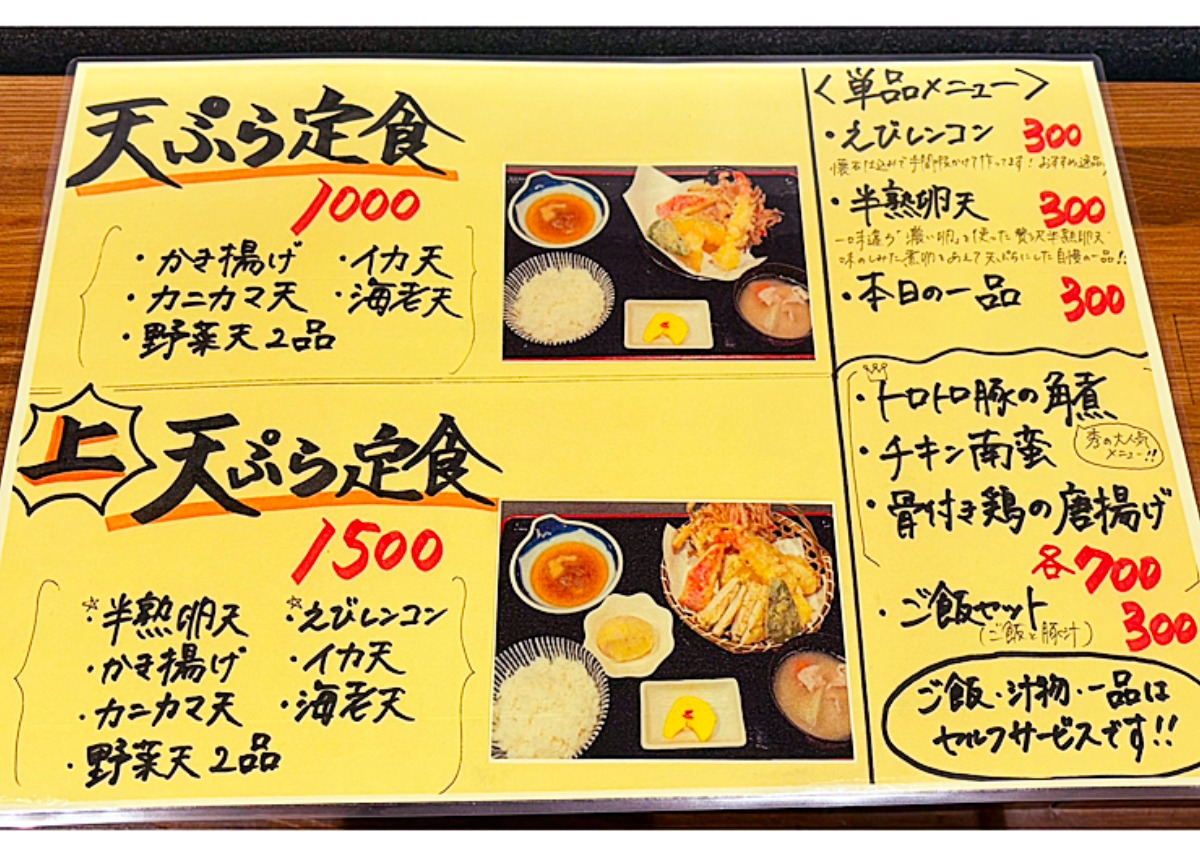 天ぷら定食
1000
・かき揚げ ・イカ天
・カニカマ天 ・海老天
・野菜天2品
上 天ぷら定食
1500
☆半熟卵天 ☆えびレンコン
・かき揚げ ・イカ天
・カニカマ天 ・海老天
・野菜天2品
〈単品メニュー〉
・えびレンコン 300
手間暇かけて作ってます！おすすめ逸品
・半熟卵天 300
一味違う"濃い卵"を使った贅沢半熟卵天
味のしみた煮卵をあえて天ぷらにした自慢の一品!!
・本日の一品 300
・トロトロ豚の角煮
・チキン南蛮
秀の大人気
メニュー!!
・骨付き鶏の唐揚げ
各700
・ご飯セット 300
(ご飯と豚汁)
ご飯・汁物・一品は
セルフサービスです!!